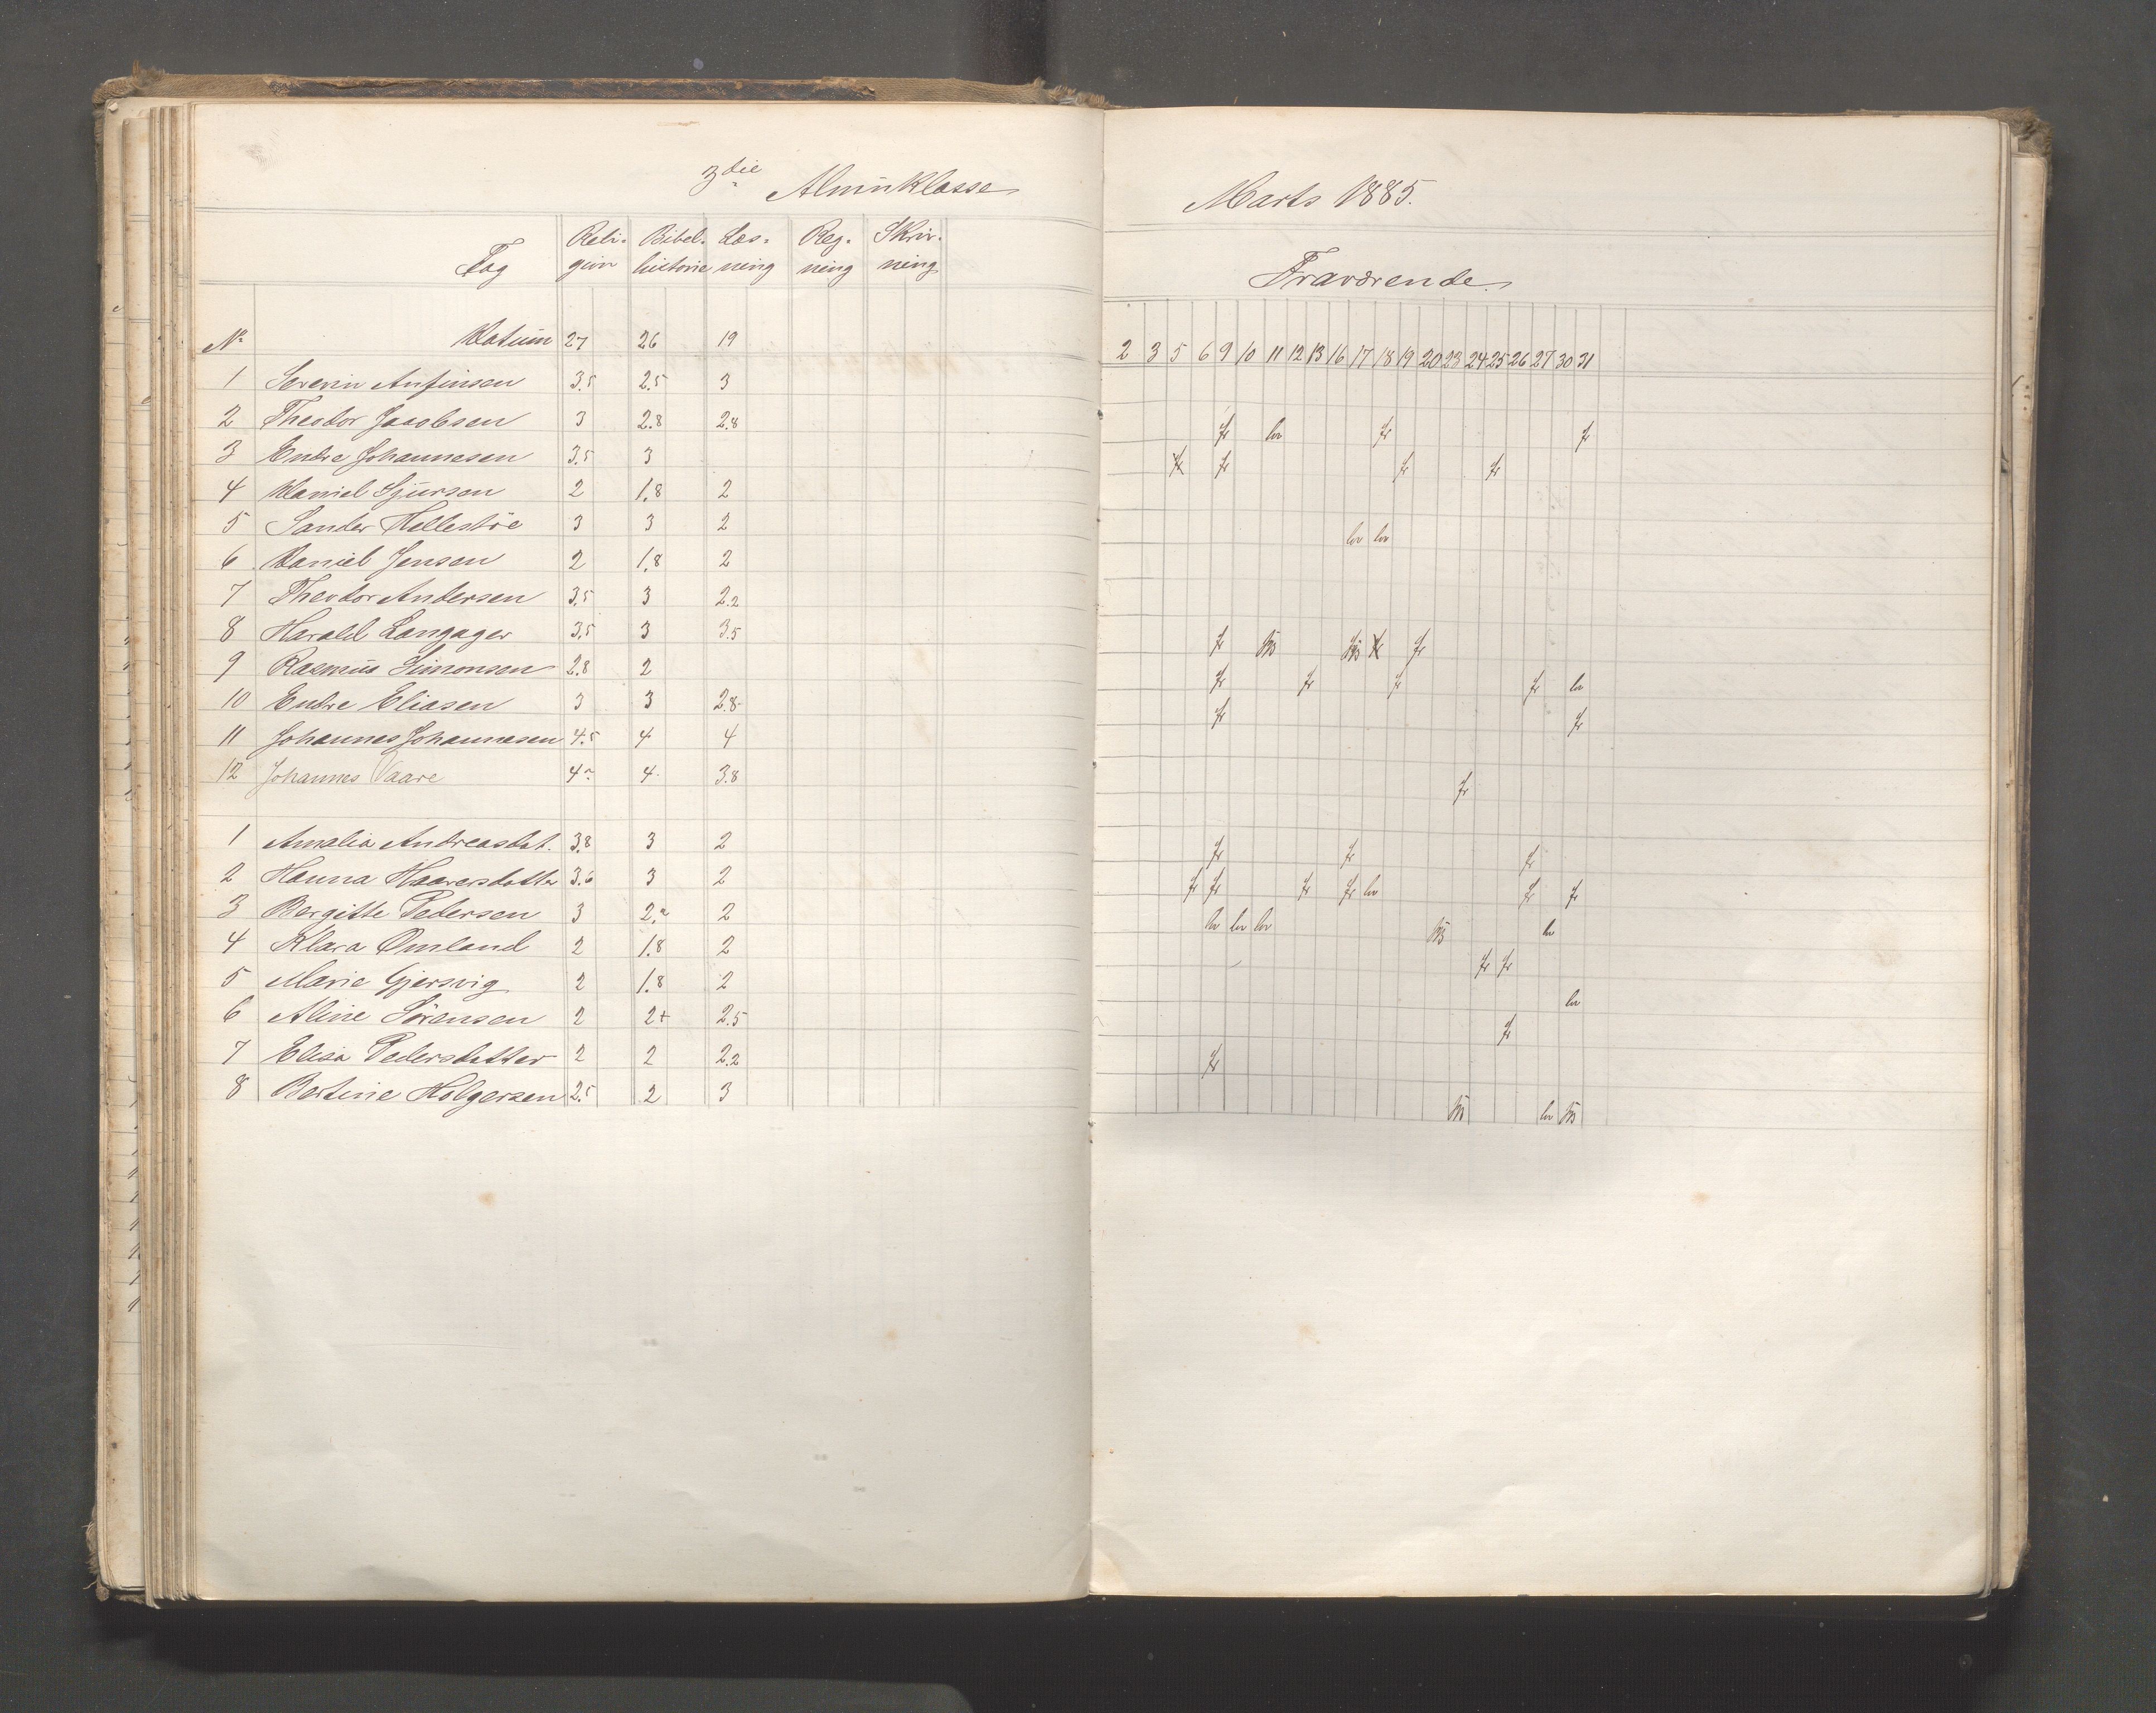 3die Almuklasse
Fag Reli- Bibel- Læs- Reg- Skriv-
gion historie ning ning ning
No Datum 27 26 19
1 Severin Anfinsen 3.5 2.5 3
2 Theodor Jacobsen 3 2.8 2.8
3 Endre Johannesen 3.5 3
4 Daniel Sjursen 2 1.8 2
5 Sander Hellestöe 3 3 2
6 Daniel Jensen 2 1.8 2
7 Theodor Andersen 3.5 3 2.2
8 Harald Langager 3.5 3 3.5
9 Rasmus Simonsen 2.8 2
10 Endre Eliasen 3 3 2.8
11 Johannes Johannesen 4.5 4 4
12 Johannes Vaare 4 4 3.8
1 Amalia Andreasdat. 3.8 3 2
2 Hanna Haaversdatter 3.6 3 2
3 Bergitte Pedersen 3 2 2
4 Klara Omland 2 1.8 2
5 Marie Gjersvig 2 1.8 2
6 Aline Sörensen 2 2+ 2.5
7 Elisa Pedersdatter 2 2 2.2
8 Bertine Holgersen 2.5 2 3
Marts 1885.
Fraværende.
2 3 5 6 9 10 11 12 13 16 17 18 19 20 23 24 25 26 27 30 31
fr lov fr fr
fr fr fr fr
lov lov
fr fr
fr fr fr fr lov
fr fr
fr
fr fr fr
fr fr fr fr lov fr fr
lov lov lov lov
fr fr
lov
fr
fr
lov